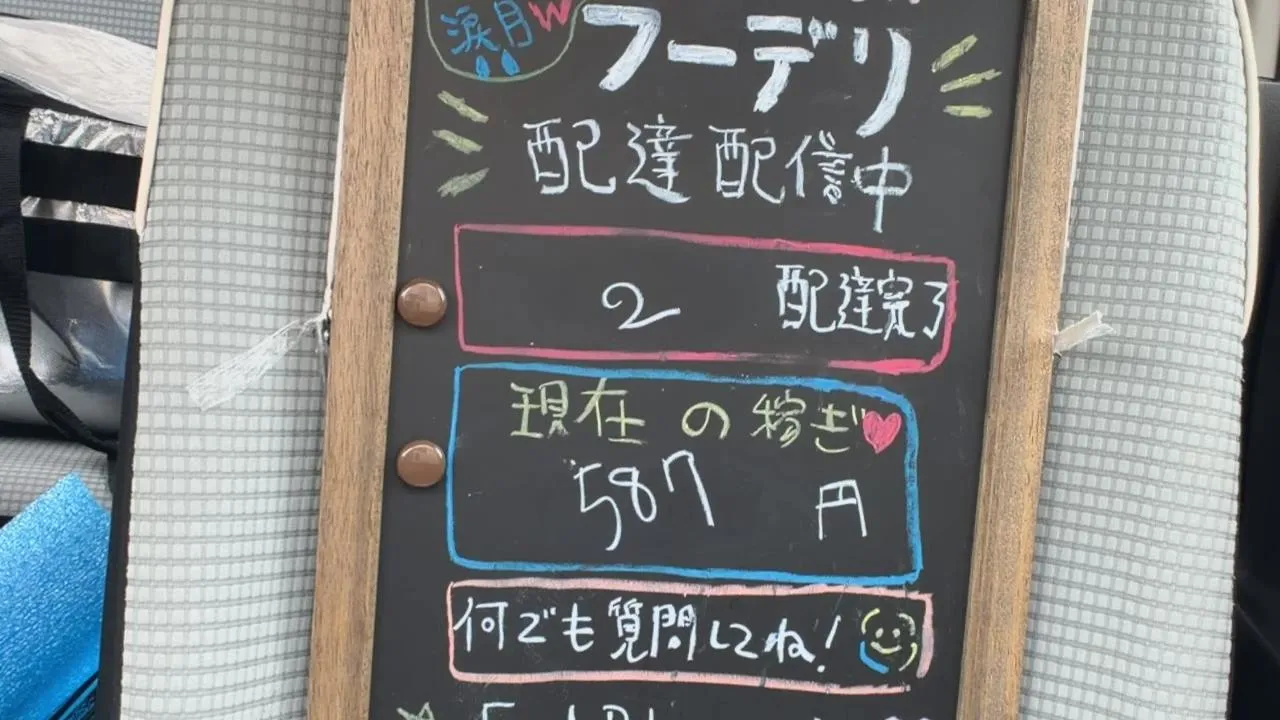 涙月W
フーデリ
配達配信中
2 配達完了
現在の稼ぎ
587 円
何でも質問してね!